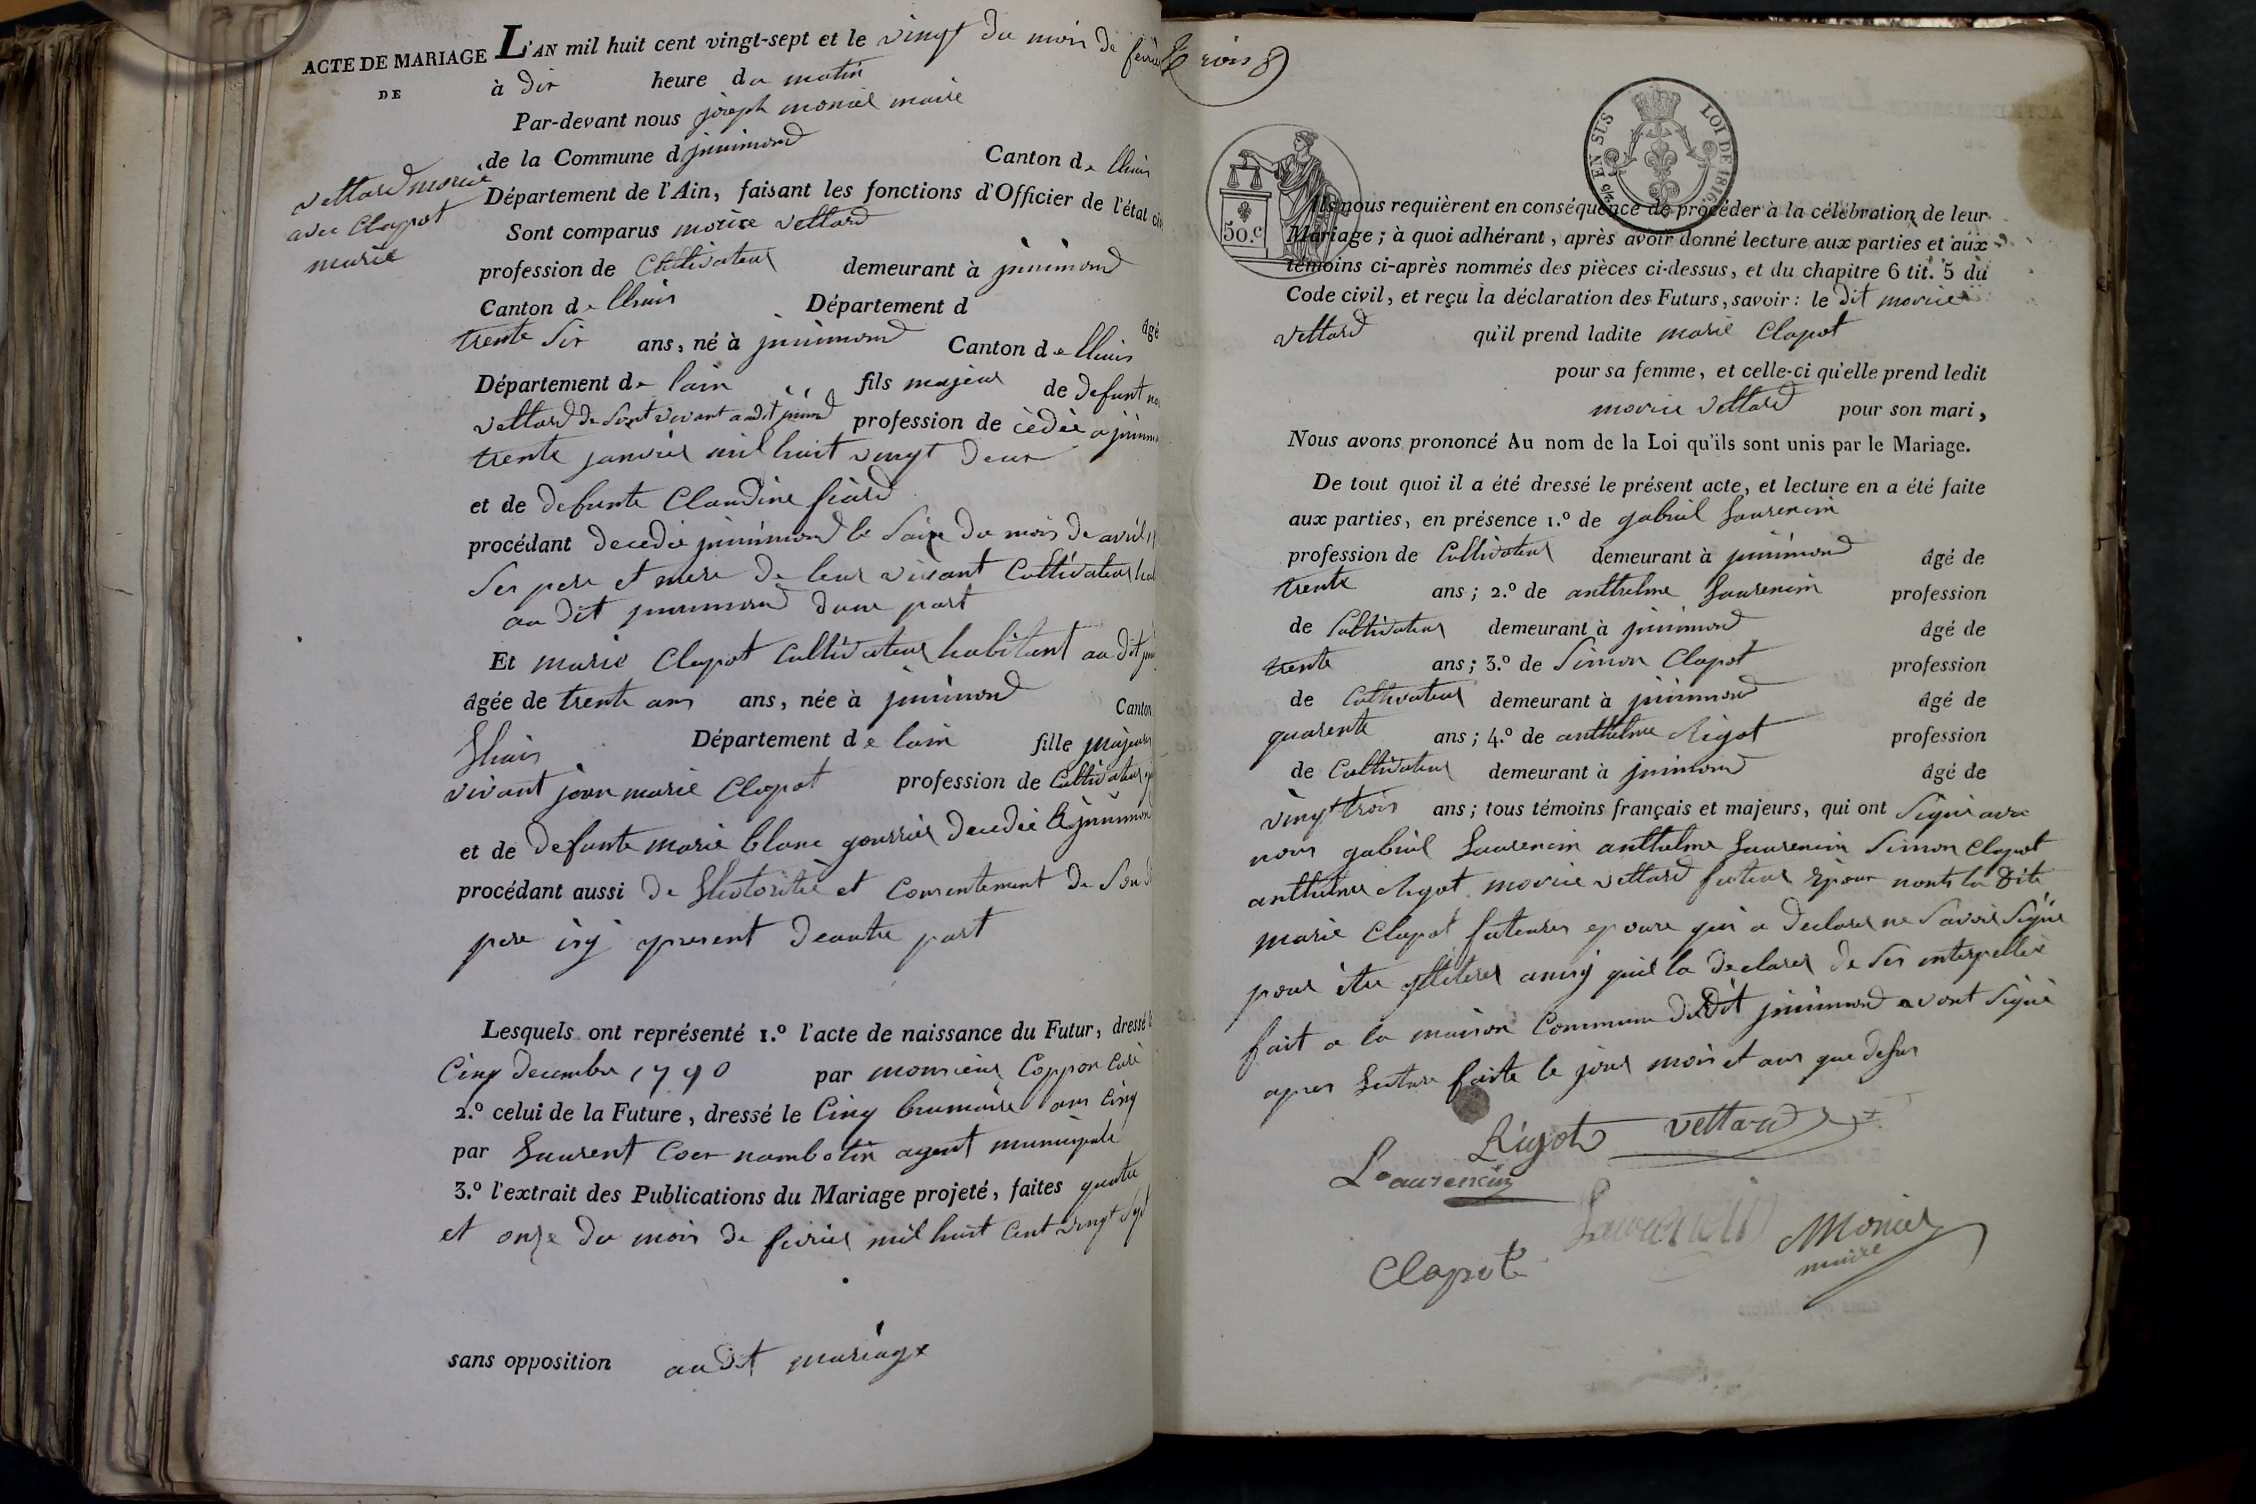 ACTE DE MARIAGE
DE
vettard morice
avec Clapot
marie
L'AN mil huit cent vingt-sept et le vingt du mois de
à dix heure du matin
Par-devant nous joseph monier maire
de la Commune d jnnimond Canton de lhuis
Département de l'Ain, faisant les fonctions d'Officier de l'état
Sont comparus morice vettard
profession de Cultivateur demeurant à jnnimond
Canton de lhuis Département d
âgé
trente Six ans, né à jnnimond Canton de lhuis
Département de lain fils majeur de defunt
vettard de Sont vivant audit profession de
trente janvier mil huit vingt deux
et de defunte Claudine
procédant decedée jnnimond le du mois de avril
Ses pere et mere de leur vivant Cultivateur
au dit jnnimond dune part
Et marie Clapot Cultivateur habitant au dit
âgée de trente ans ans, née à jnnimond Canton
lhuis Département de lain fille majeure
vivant jean marie Clapot profession de Cultivateur
et de defunte marie blanc decedée
procédant aussi de et Consentement de Son
pere present deautre part
Lesquels ont représenté 1.º l'acte de naissance du Futur, dressé
Cinq decembre 1790 par monsieur Coppon Curé
2.º celui de la Future, dressé le Cinq brumaire an Cinq
par Laurent agent municipale
3.º l'extrait des Publications du Mariage projeté, faites quatre
et onze du mois de fevrier mil huit Cent vingt Sept
sans opposition audit mariage
EN SUS LOI DE 1816
50.c
Ils nous requièrent en conséquence de procéder à la célébration de leur
Mariage ; à quoi adhérant, après avoir donné lecture aux parties et aux
témoins ci-après nommés des pièces ci-dessus, et du chapitre 6 tit. 5 du
Code civil, et reçu la déclaration des Futurs, savoir : le dit morice
vettard qu'il prend ladite marie Clapot
pour sa femme, et celle-ci qu'elle prend ledit
morice vettard pour son mari,
Nous avons prononcé Au nom de la Loi qu'ils sont unis par le Mariage.
De tout quoi il a été dressé le présent acte, et lecture en a été faite
aux parties, en présence 1.º de gabriel Laurencin
profession de Cultivateur demeurant à jnnimond âgé de
trente ans ; 2.º de anthelme Laurencin profession
de Cultivateur demeurant à jnnimond âgé de
trente ans ; 3.º de Simon Clapot profession
de Cultivateur demeurant à jnnimond âgé de
quarente ans ; 4.º de anthelme Rigot profession
de Cultivateur demeurant à jnnimond âgé de
vingt trois ans ; tous témoins français et majeurs, qui ont Signé avec
nous gabriel Laurencin anthelme Laurencin Simon Clapot
anthelme Rigot morice vettard futeur Epoux nonts la dite
marie Clapot futeure epouse qui a declarer ne Savoir Signé
pour être illiterer ainsy quil la declarer de Ses interpellée
fait a la maison Commune dudit jnnimond avont Signé
apres Lecture faite le jour mois et ans que desus
Rigot vettard
Laurencin
Laurencin
Clapot
Monier
maire